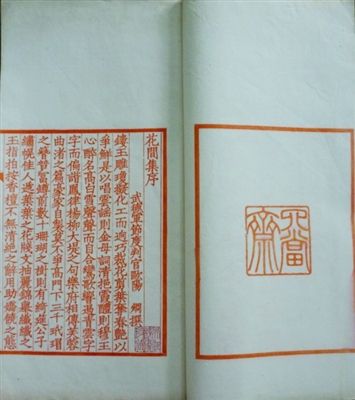 花間集序
武德軍節度判官歐陽 烱撰
鏤玉雕瓊擬化工而迥巧裁花剪葉奪春艷以
爭鮮是以唱雲謠則金母詞清挹霞醴則穆王
心醉名高白雪聲聲而自合鸞歌響遏青雲字
字而偏諧鳳律楊柳大堤之句樂府相傳芙蓉
曲渚之篇豪家自製莫不爭高門下三千玳瑁
之簪競富罇前數十珊瑚之樹則有綺筵公子
繡幌佳人遞葉葉之花牋文抽麗錦舉纖纖之
玉指拍按香檀不無清絕之辭用助嬌嬈之態